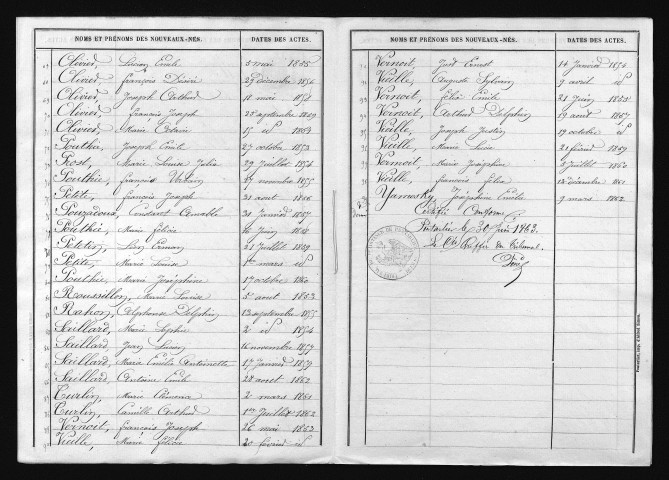 NOMS ET PRÉNOMS DES NOUVEAUX-NÉS. DATES DES ACTES.
Olivier, Emile 5 mai
Olivier, françois Désiré 27 décembre 1856
Olivier, Joseph Arthur 18 mai
Olivier, françois Joseph 28 septembre 1859
Olivier, Marie Octavie 15 id 1863
Pouthie, Joseph Emile 27 octobre 1853
Prost, Marie Louise Julie 29 Juillet 1854
Pouthie, francois Urbain 27 novembre 1855
Petite, françois Joseph 31 aout 1856
Pouzadoux, Constant Aimable 30 Janvier 1857
Pouthié, Marie félicie 16 Juin 1858
Petitin, Léon Erman 21 Juillet 1859
Petite, Marie Louise 1er mars id
Pouthie, Marie Joséphine 17 octobre 1860
Roussillon, Marie Louise 5 aout 1853
Rahon, Alphonse Delphin 13 septembre 1855
Saillard, Marie Sophie 2 id 1854
Saillard, Jean 16 novembre 1857
Saillard, Marie Emilie Antoinette 17 Janvier 1859
Saillard, Antoine Emile 28 aout 1862
Turlin, Marie Clémence 2 mars 1861
Turlin, Camille Arthur 1er Juillet 1862
Voinoit, francois Joseph 26 mai 1853
Vieille, Marie félicie 20 février id
NOMS ET PRÉNOMS DES NOUVEAUX-NÉS. DATES DES ACTES.
Voinoit, Just Ernest 14 Janvier 1854
Vieille, Auguste Sylvain 9 avril id
Voinoit, Emile 21 Juin
Voinoit, Arthur Delphin 19 aout 1857
Vieille, Joseph Justin 19 octobre id
Vieille, Marie Lucie 21 février 1859
Voinoit, Marie Joséphine 3 Juillet 1860
Vieille, francois Elie 12 décembre 1861
Yamosky Joséphine Emélie 9 mars 1862
Certifié Conforme
Pontarlier le 30 Juin 1863.
Le Greffier du Tribunal.